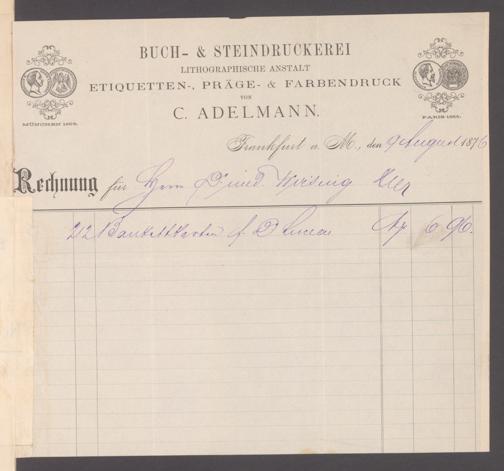 BUCH- & STEINDRUCKEREI
LITHOGRAPHISCHE ANSTALT
ETIQUETTEN-, PRÄGE- & FARBENDRUCK
VON
C. ADELMANN.
MÜNCHEN
PARIS
Frankfurt a. M., den 9 August 1876
Rechnung für Herrn
212 Bankettkarten f. D M 6 96.